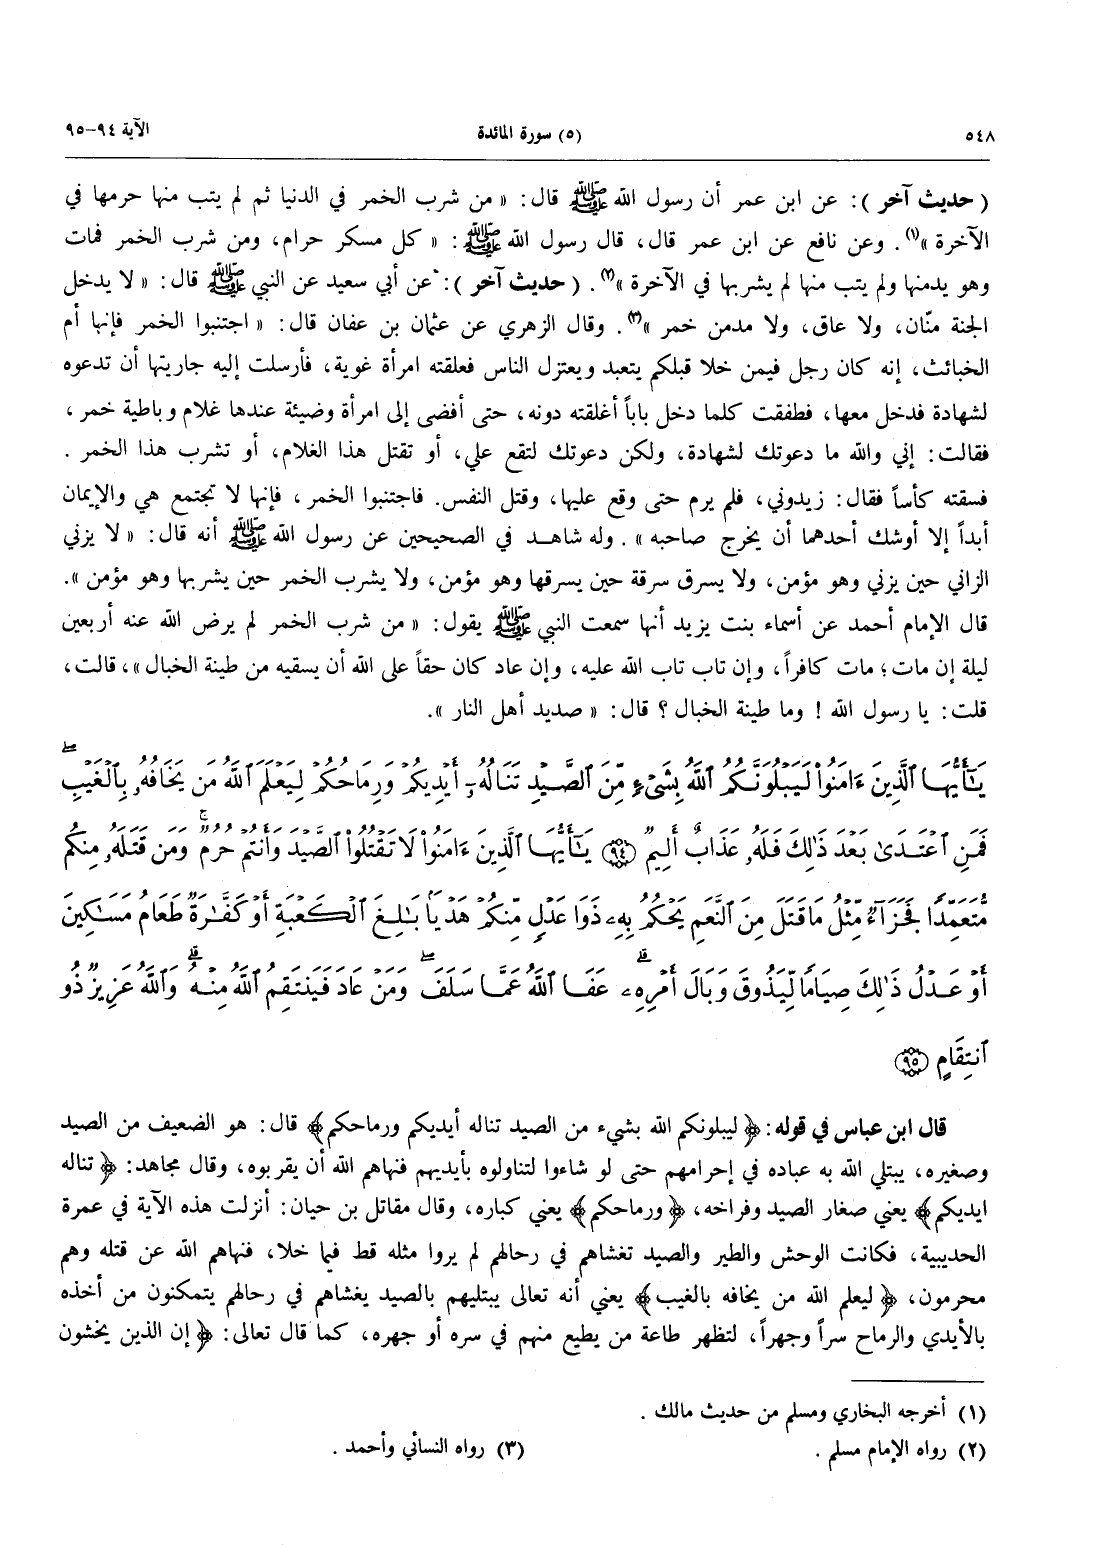 ٥٤٨ (٥) سورة المائدة الآية ٩٤–٩٥
( حديث آخر ): عن ابن عمر أن رسول الله ﷺ قال: « من شرب الخمر في الدنيا ثم لم يتب منها حرمها في
الآخرة »(١). وعن نافع عن ابن عمر قال، قال رسول الله ﷺ: « كل مسكر حرام، ومن شرب الخمر فمات
وهو يدمنها ولم يتب منها لم يشربها في الآخرة »(٢). ( حديث آخر ): عن أبي سعيد عن النبي ﷺ قال: « لا يدخل
الجنة منّان، ولا عاق، ولا مدمن خمر »(٣). وقال الزهري عن عثمان بن عفان قال: « اجتنبوا الخمر فإنها أم
الخبائث، إنه كان رجل فيمن خلا قبلكم يتعبد ويعتزل الناس فعلقته امرأة غوية، فأرسلت إليه جاريتها أن تدعوه
لشهادة فدخل معها، فطفقت كلما دخل باباً أغلقته دونه، حتى أفضى إلى امرأة وضيئة عندها غلام وباطية خمر،
فقالت: إني والله ما دعوتك لشهادة، ولكن دعوتك لتقع علي، أو تقتل هذا الغلام، أو تشرب هذا الخمر .
فسقته كأساً فقال: زيدوني، فلم يرم حتى وقع عليها، وقتل النفس. فاجتنبوا الخمر، فإنها لا تجتمع هي والإيمان
أبداً إلا أوشك أحدهما أن يخرج صاحبه ». وله شاهد في الصحيحين عن رسول الله ﷺ أنه قال: « لا يزني
الزاني حين يزني وهو مؤمن، ولا يسرق سرقة حين يسرقها وهو مؤمن، ولا يشرب الخمر حين يشربها وهو مؤمن ».
قال الإمام أحمد عن أسماء بنت يزيد أنها سمعت النبي ﷺ يقول: « من شرب الخمر لم يرض الله عنه أربعين
ليلة إن مات؛ مات كافراً، وإن تاب تاب الله عليه، وإن عاد كان حقاً على الله أن يسقيه من طينة الخبال »، قالت،
قلت: يا رسول الله ! وما طينة الخبال ؟ قال: « صديد أهل النار ».
يَـٰٓأَيُّهَا ٱلَّذِينَ ءَامَنُوا۟ لَيَبْلُوَنَّكُمُ ٱللَّهُ بِشَىْءٍ مِّنَ ٱلصَّيْدِ تَنَالُهُۥٓ أَيْدِيكُمْ وَرِمَاحُكُمْ لِيَعْلَمَ ٱللَّهُ مَن يَخَافُهُۥ بِٱلْغَيْبِ ۖ
فَمَنِ ٱعْتَدَىٰ بَعْدَ ذَٰلِكَ فَلَهُۥ عَذَابٌ أَلِيمٌ ﴿٩٤﴾ يَـٰٓأَيُّهَا ٱلَّذِينَ ءَامَنُوا۟ لَا تَقْتُلُوا۟ ٱلصَّيْدَ وَأَنتُمْ حُرُمٌ ۚ وَمَن قَتَلَهُۥ مِنكُم
مُّتَعَمِّدًا فَجَزَآءٌ مِّثْلُ مَا قَتَلَ مِنَ ٱلنَّعَمِ يَحْكُمُ بِهِۦ ذَوَا عَدْلٍ مِّنكُمْ هَدْيًۢا بَـٰلِغَ ٱلْكَعْبَةِ أَوْ كَفَّـٰرَةٌ طَعَامُ مَسَـٰكِينَ
أَوْ عَدْلُ ذَٰلِكَ صِيَامًا لِّيَذُوقَ وَبَالَ أَمْرِهِۦ ۗ عَفَا ٱللَّهُ عَمَّا سَلَفَ ۖ وَمَنْ عَادَ فَيَنتَقِمُ ٱللَّهُ مِنْهُ ۗ وَٱللَّهُ عَزِيزٌ ذُو
ٱنتِقَامٍ ﴿٩٥﴾
قال ابن عباس في قوله: ﴿ ليبلونكم الله بشيء من الصيد تناله أيديكم ورماحكم ﴾ قال: هو الضعيف من الصيد
وصغيره، يبتلي الله به عباده في إحرامهم حتى لو شاءوا لتناولوه بأيديهم فنهاهم الله أن يقربوه، وقال مجاهد: ﴿ تناله
ايديكم ﴾ يعني صغار الصيد وفراخه، ﴿ ورماحكم ﴾ يعني كباره، وقال مقاتل بن حيان: أنزلت هذه الآية في عمرة
الحديبية، فكانت الوحش والطير والصيد تغشاهم في رحالهم لم يروا مثله قط فيما خلا، فنهاهم الله عن قتله وهم
محرمون، ﴿ ليعلم الله من يخافه بالغيب ﴾ يعني أنه تعالى يبتليهم بالصيد يغشاهم في رحالهم يتمكنون من أخذه
بالأيدي والرماح سراً وجهراً، لتظهر طاعة من يطيع منهم في سره أو جهره، كما قال تعالى: ﴿ إن الذين يخشون
(١) أخرجه البخاري ومسلم من حديث مالك .
(٢) رواه الإمام مسلم . (٣) رواه النسائي وأحمد .